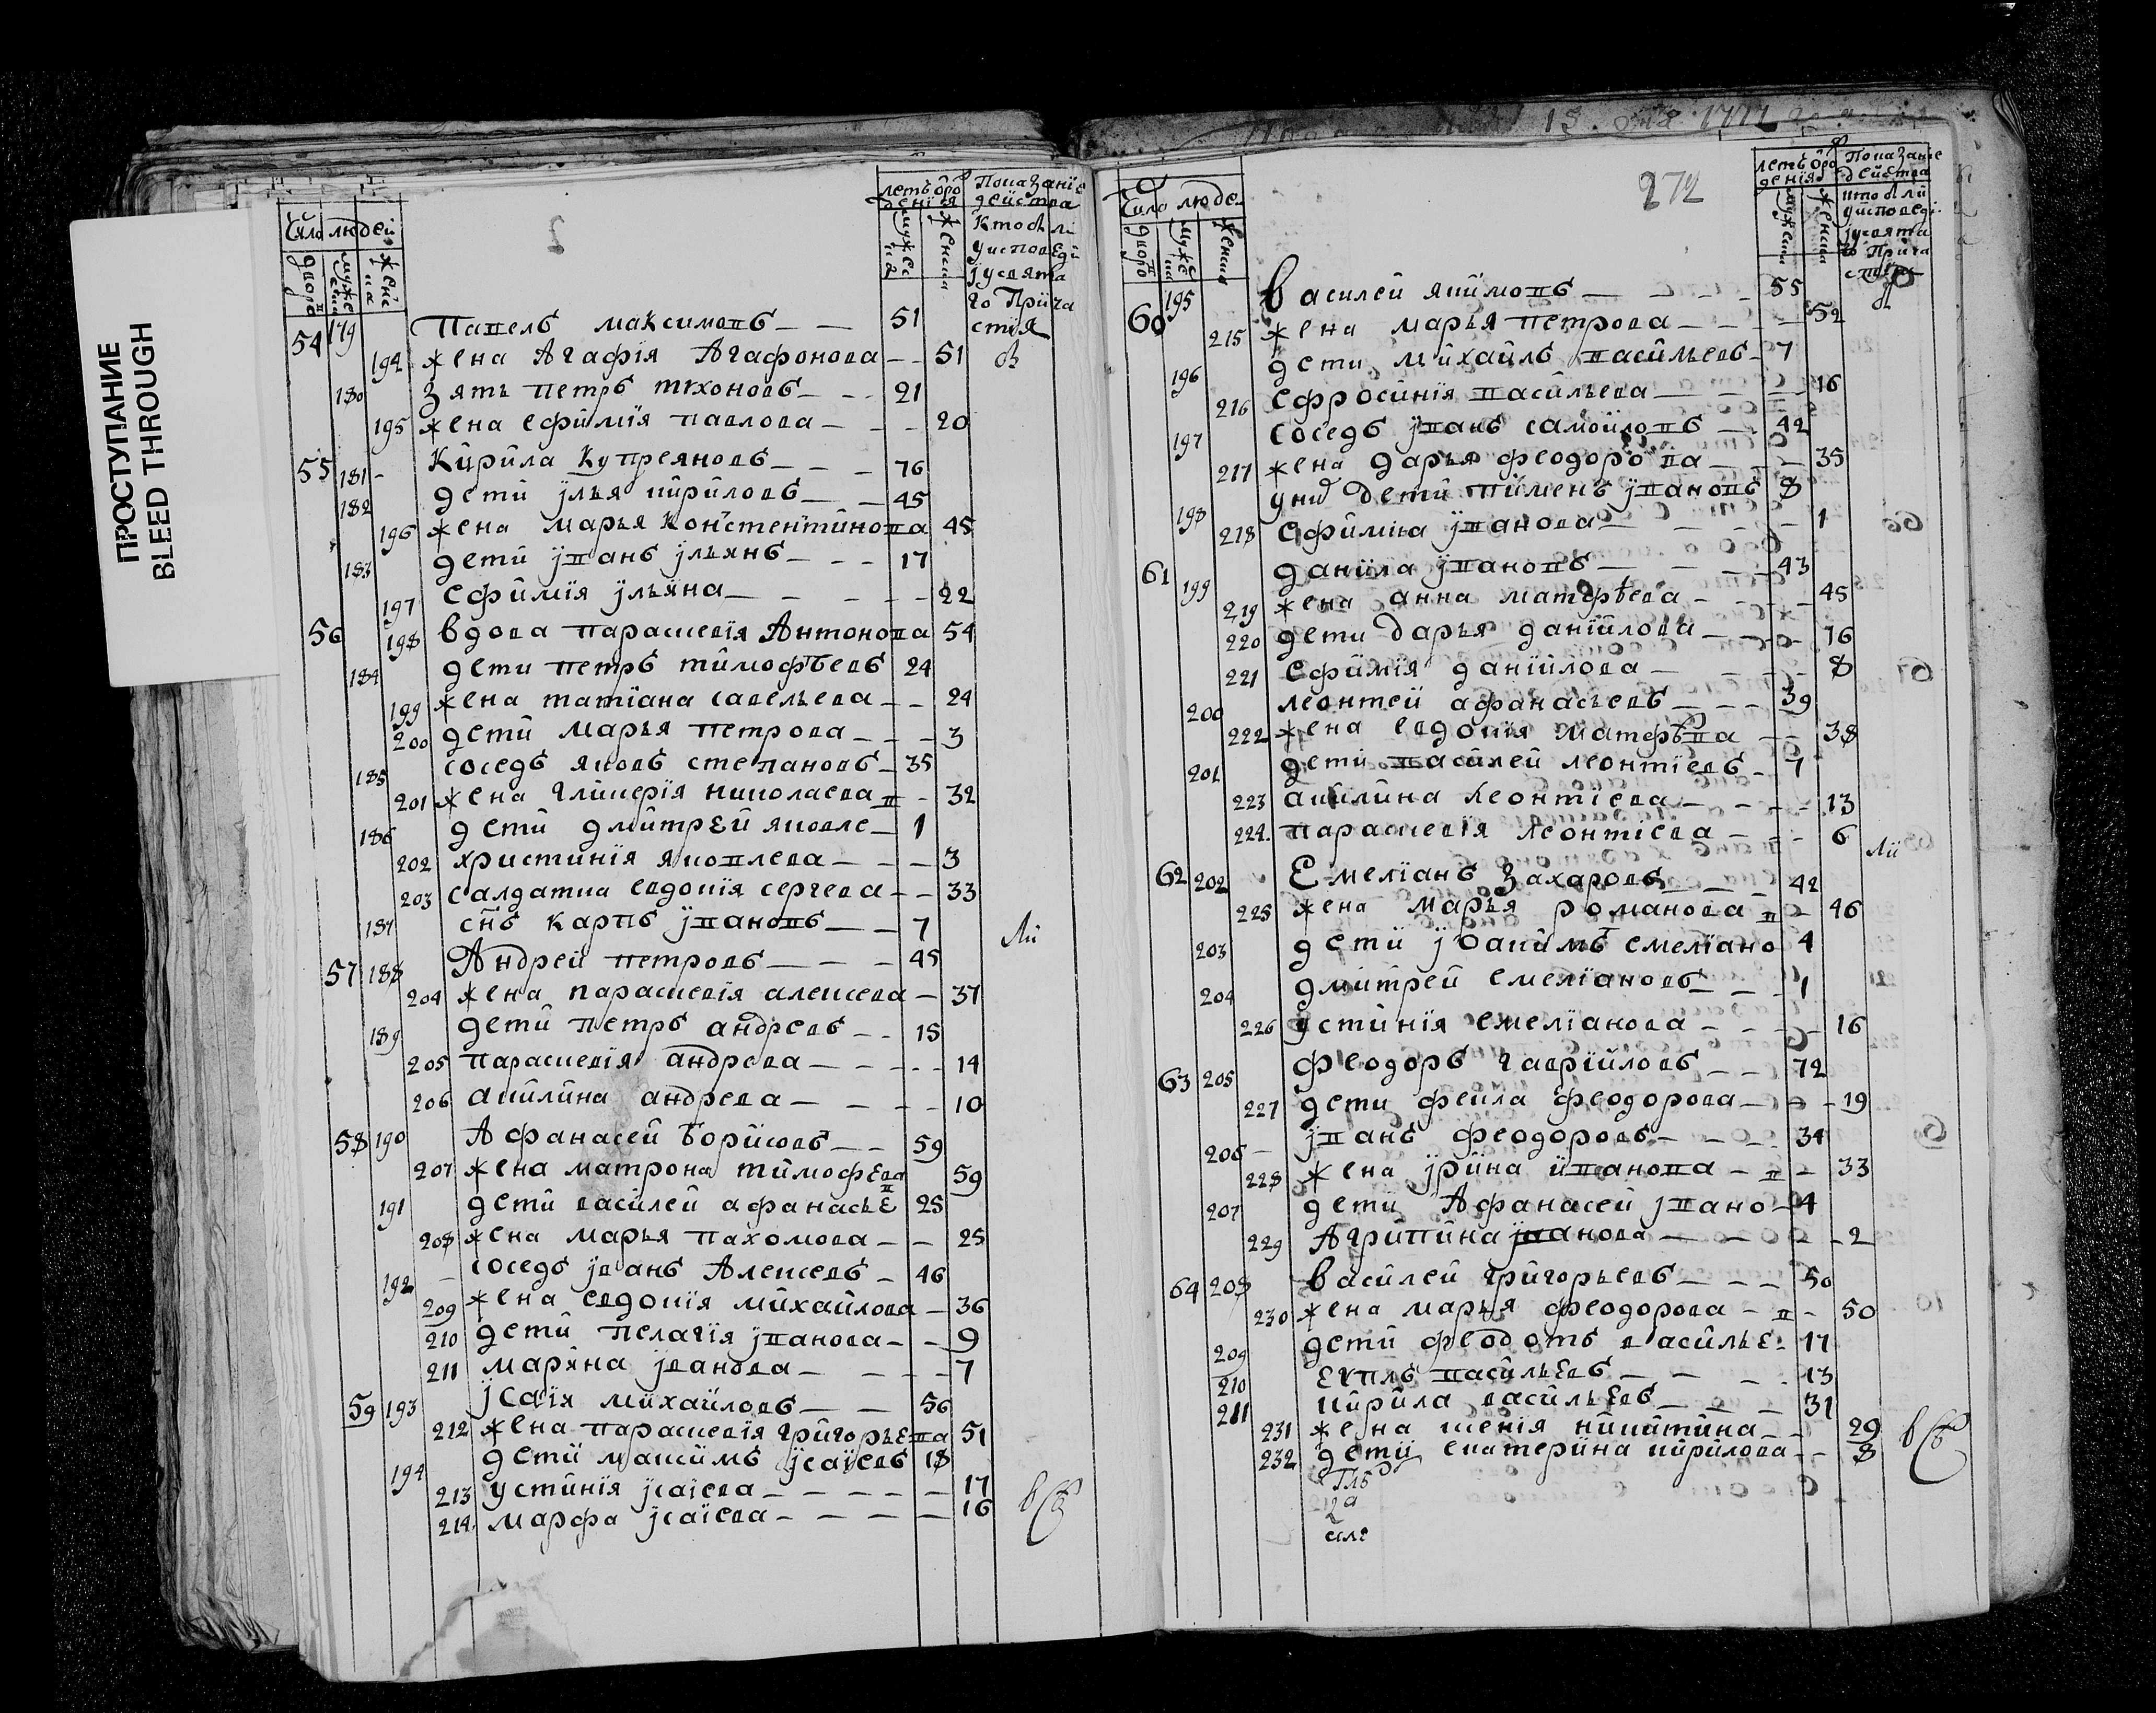 ПРОСТУПАНИЕ
BLEED THROUGH
Число людей
дворо мужеска женска
летъ ѿ рождения
мужеск женска
Показание действа
кто былъ у исповеди и у святаго Причастия
54 179 Павелъ максимовъ 51
194 жена Агафїя Агафонова 51
180 Зять петръ тихоновъ 21
195 жена ефимїя павлова 20
55 181 Кирила Купреяновъ 76
182 дети Ѵлья кириловъ 45
196 жена марья констентинова 45
183 дети Ѵванъ Ѵльянъ 17
197 ефимїя Ѵльяна 22
56 198 вдова параскевїя Антонова 54
184 дети петръ тимофѣевъ 24
199 жена татїана савельева 24
200 дети марья петрова 3
185 соседъ яковъ степановъ 35
201 жена гликерїя николаева 32
186 дети дмитрей яковле 1
202 христинїя яковлева 3
203 салдатка евдокїя сергева 33
187 снъ карпъ Ѵвановъ 7
57 188 Андрей петровъ 45
204 жена параскевїя алексева 37
189 дети петръ андревъ 15
205 параскевїя андрева 14
206 акилина андрева 10
58 190 Афанасей борисовъ 59
207 жена матрона тимофева 59
191 дети василей афанасье 25
208 жена марья пахомова 25
192 соседъ Ѵванъ Алексевъ 46
209 жена евдокїя михайлова 36
210 дети пелагїя Ѵванова 9
211 марина Ѵванова 7
59 193 Ѵсаїя михайловъ 56
212 жена параскевїя григорьева 51
194 дети максимъ Ѵсаїевъ 18
213 устинїя Ѵсаїева 17
214 марфа Ѵсаїева 16
272
Число людей
дворо мужеска женска
летъ ѿ рождения
мужеска женска
Показание действа
кто былъ у исповеди и у святаго Причастия
60 195 василей якимовъ 55
215 жена марья петрова 52
196 дети михайлъ васильевъ 7
216 ефросинїя васильева 16
197 соседъ Ѵванъ самойловъ 42
217 жена дарья феодорова 35
198 у них дети пименъ Ѵвановъ 8
218 ефимїа Ѵванова 1
61 199 данила Ѵвановъ 43
219 жена анна матфѣева 45
220 дети дарья данїилова 16
221 ефимїя данїилова 8
200 леонтей афанасьевъ 39
222 жена евдокїя матфѣва 38
201 дети василей леонтїевъ 7
223 акилина леонтїева 13
224 параскевїя леонтїева 6
62 202 Емелїанъ Захаровъ 42
225 жена марья романова 46
203 дети Ѵоакимъ емелїано 4
204 дмитрей емелїановъ 1
226 устинїя емелїанова 16
63 205 феодоръ гаврїиловъ 72
227 дети фекла феодорова 19
206 Ѵванъ феодоровъ 34
228 жена Ѵрина иванова 33
207 дети Афанасей Ѵвано 4
229 Агрипина Ѵванова 2
64 208 василей григорьевъ 50
230 жена марья феодорова 50
209 дети феодотъ василье 17
210 еѵплъ васильевъ 13
211 кирила васильевъ 31
231 жена ксенїя никитина 29
232 дети екатерина кирилова 8